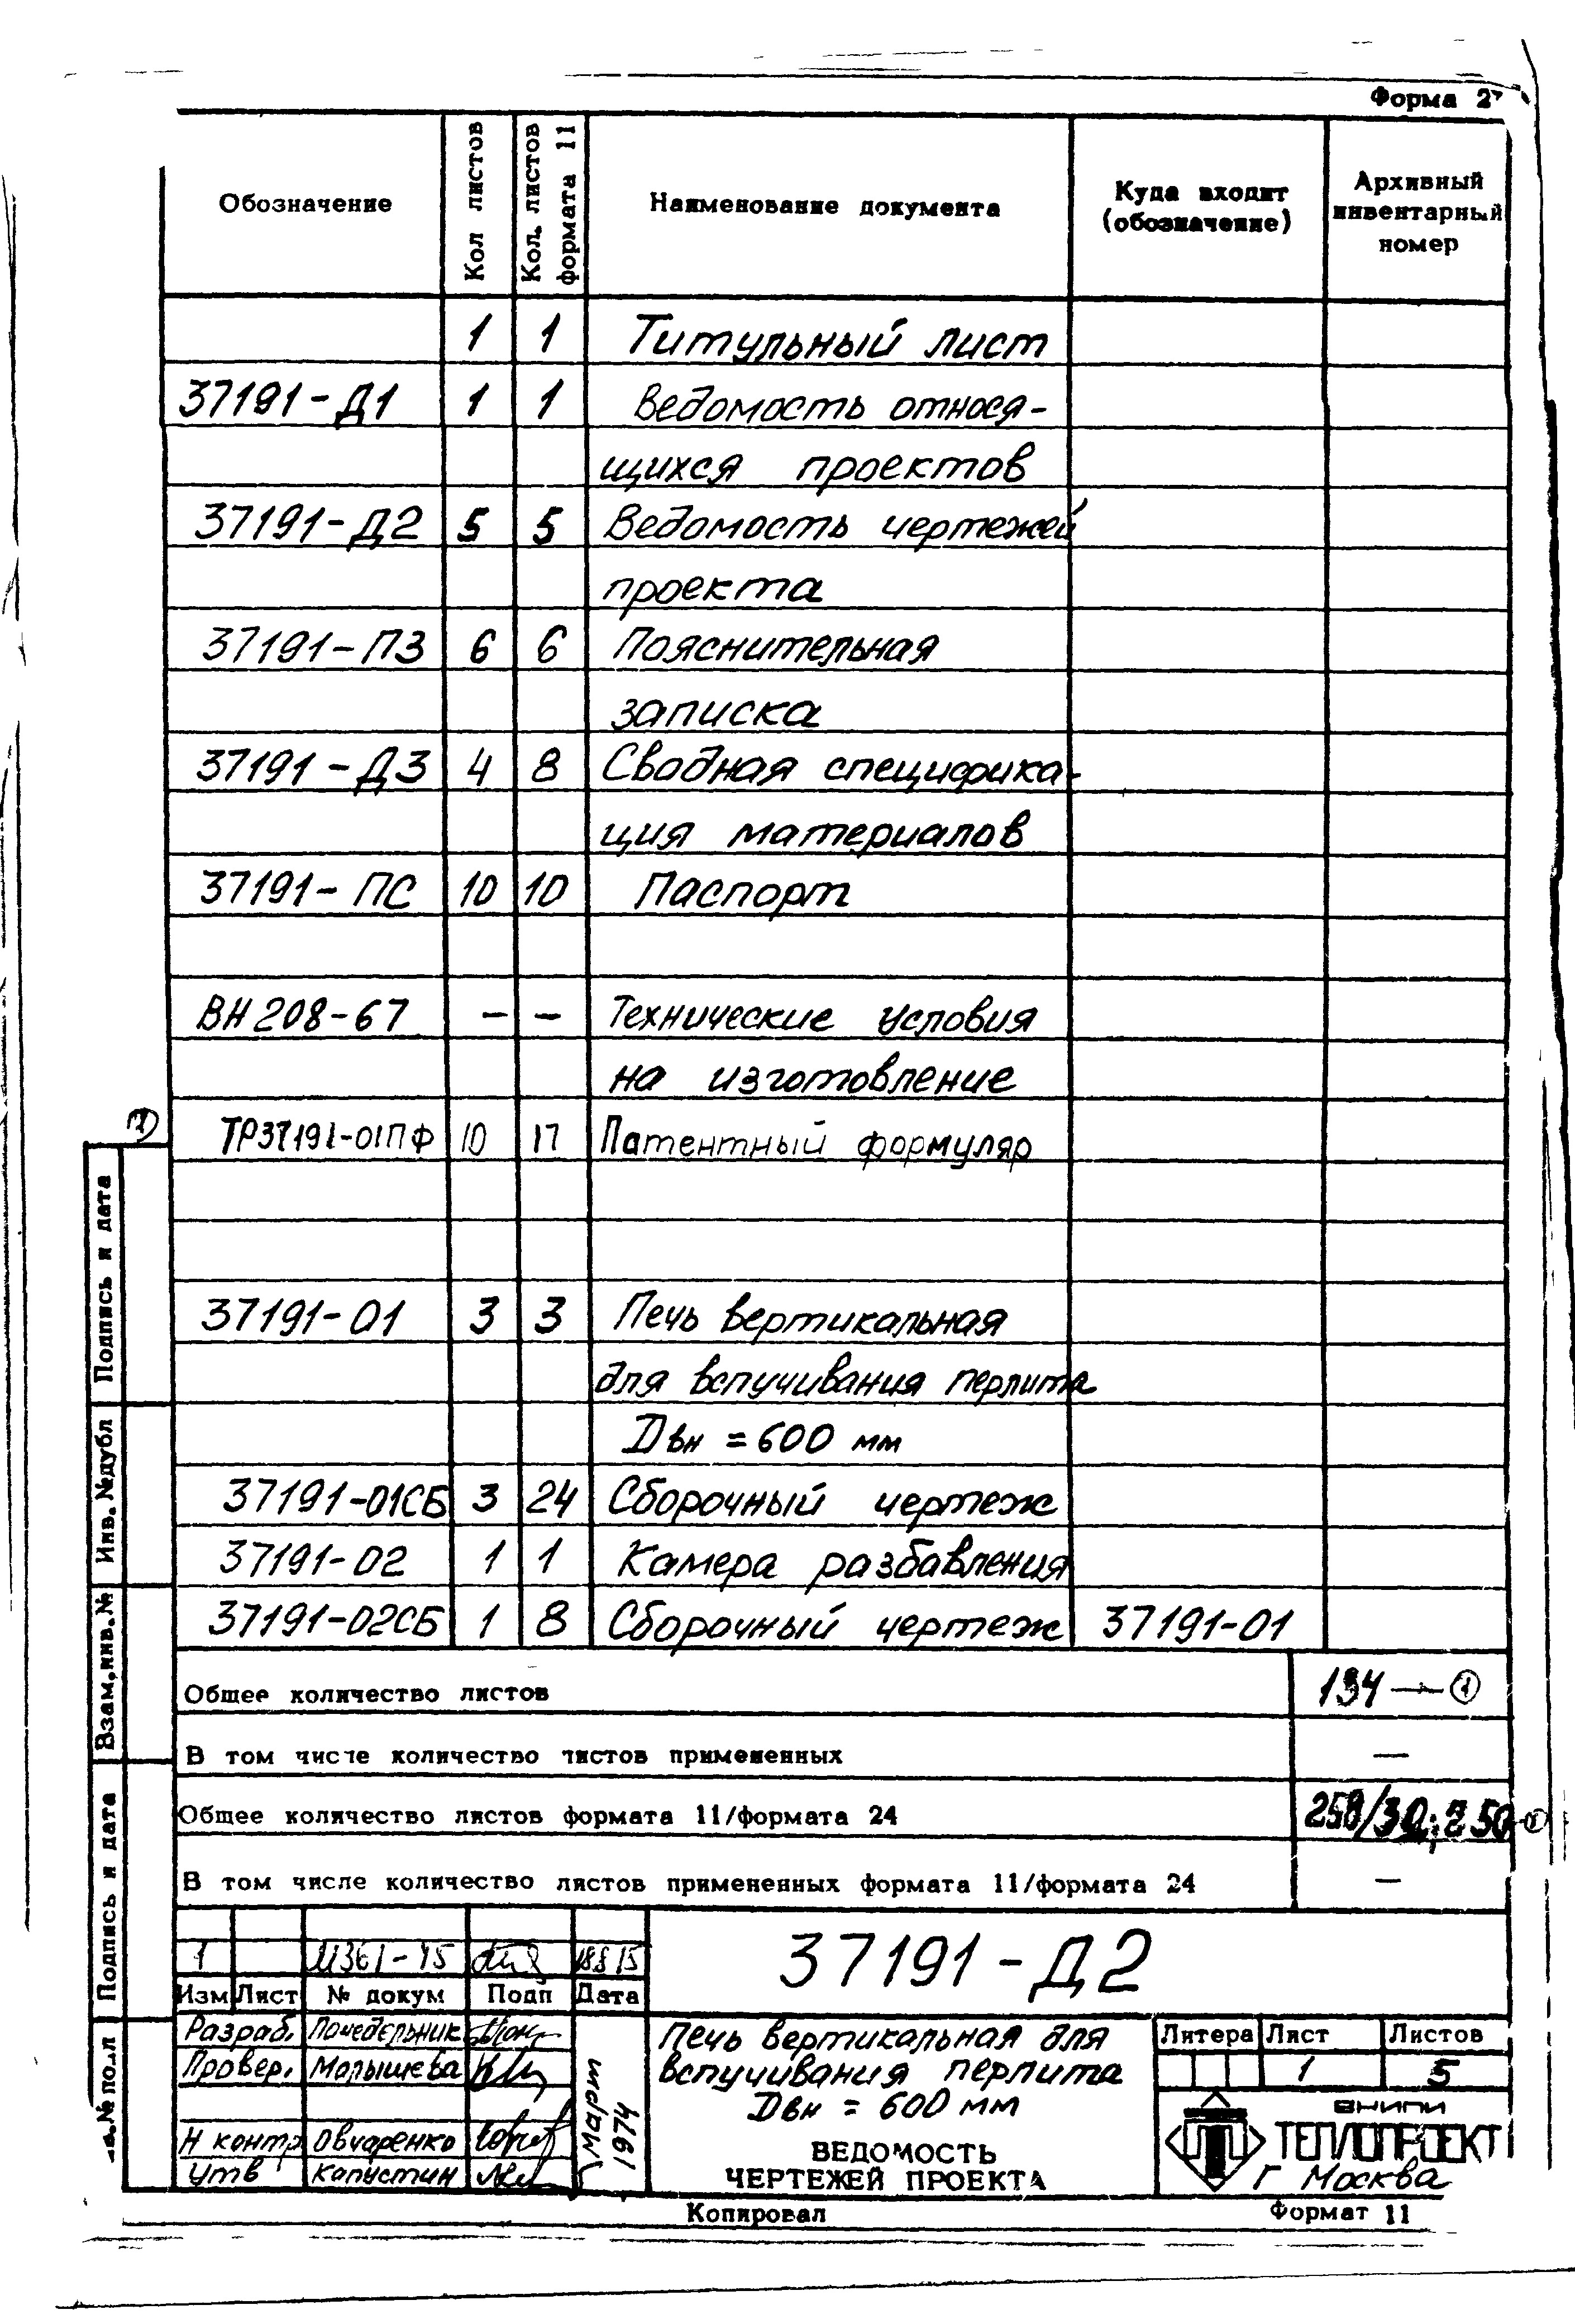 Форма 2
Обозначение
Кол листов
Кол. листов формата 11
Наименование документа
Куда входит (обозначение)
Архивный инвентарный номер
1 1 Титульный лист
37191-Д1 1 1 Ведомость относя-
щихся проектов
37191-Д2 5 5 Ведомость чертежей
проекта
37191-ПЗ 6 6 Пояснительная
записка
37191-Д3 4 8 Сводная специфика-
ция материалов
37191-ПС 10 10 Паспорт
ВН 208-67 — — Технические условия
на изготовление
ТР37191-01ПФ 10 17 Патентный формуляр
37191-01 3 3 Печь вертикальная
для вспучивания перлита
Dвн = 600 мм
37191-01СБ 3 24 Сборочный чертеж
37191-02 1 1 Камера разбавления
37191-02СБ 1 8 Сборочный чертеж 37191-01
Общее количество листов 134 — 1
В том числе количество листов примененных —
Общее количество листов формата 11/формата 24
В том числе количество листов примененных формата 11/формата 24 —
Подпись и дата
Инв. №дубл
Взам.инв.№
Подпись и дата
№ подл
1
Изм Лист № докум Подп Дата
37191-Д2
Разраб. Понедельник
Провер. Малышева
Н контр Овчаренко
Утв Капустин
Март 1974
Печь вертикальная для
вспучивания перлита
Dвн = 600 мм
ВЕДОМОСТЬ
ЧЕРТЕЖЕЙ ПРОЕКТА
Литера Лист Листов
1 5
ВНИПИ
ТЕПЛОПРОЕКТ
Г Москва
Копировал
Формат 11